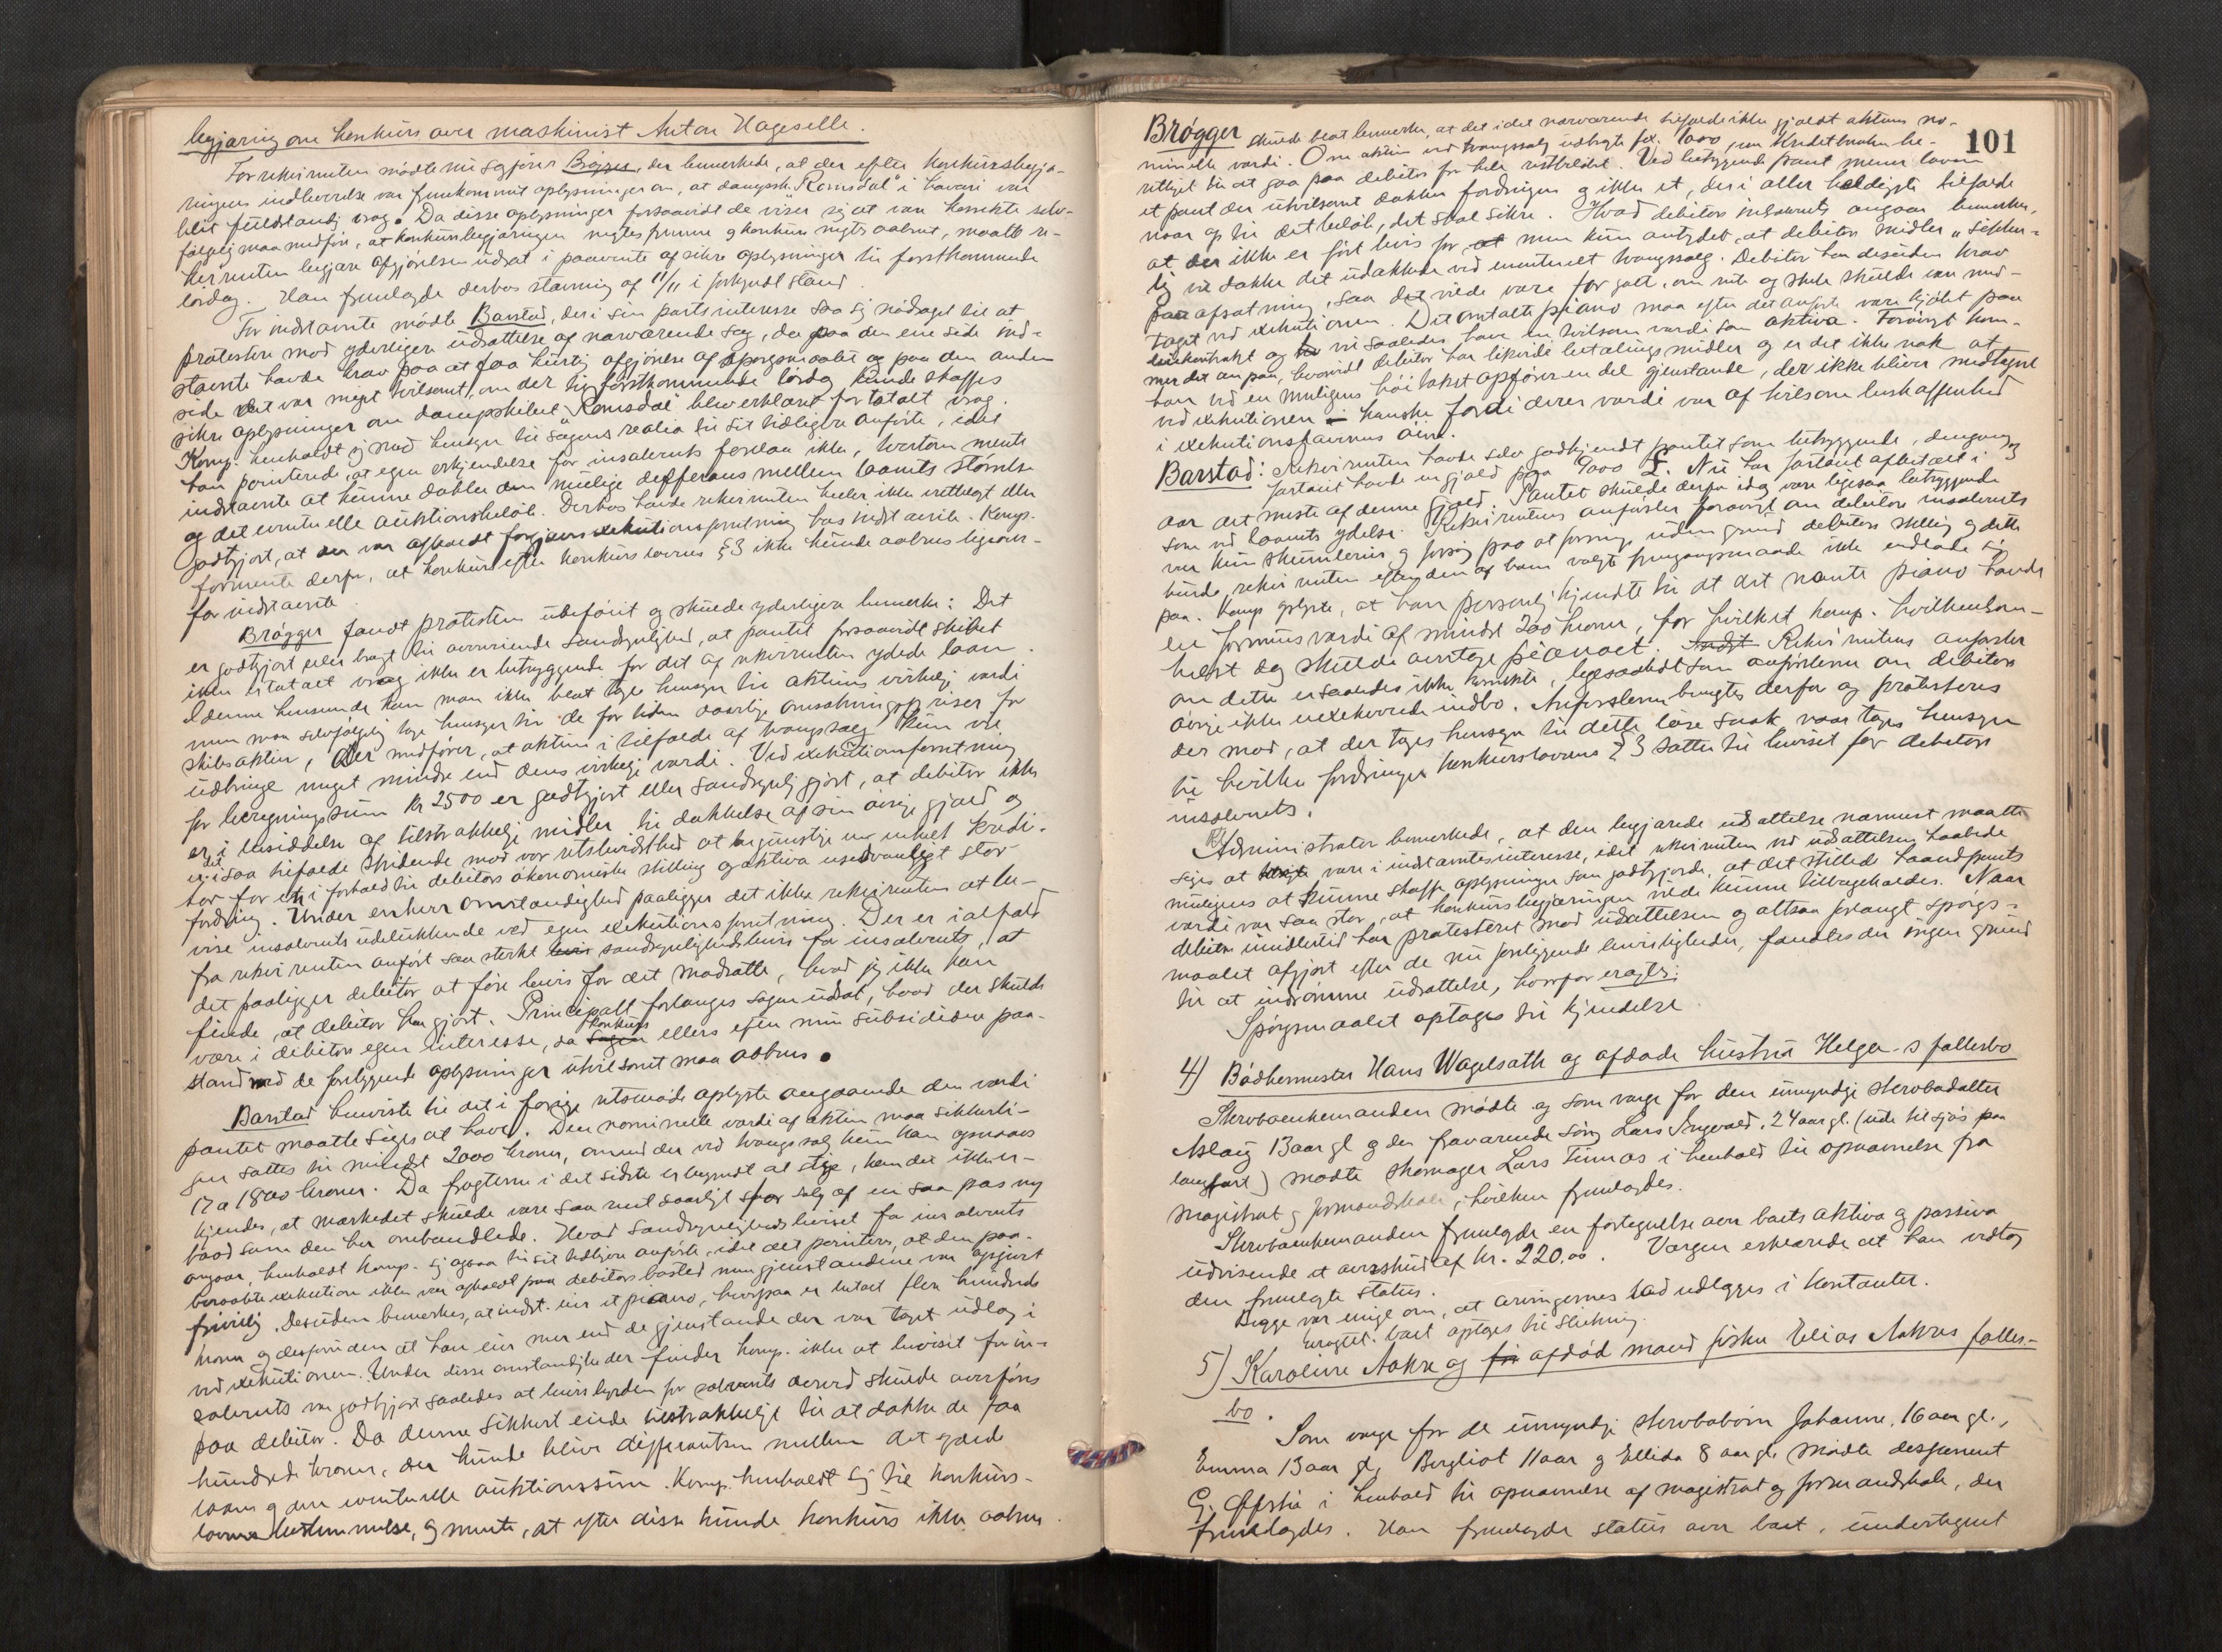 begjæring om konkurs over maskinist Anton Hageselle.
For rekvirenten mødte nu sagfører Brøgger, der bemerkede, at der efter konkursbegjæ-
ringens indleverelse var fremkommet oplysninger om, at dampsk. "Romsdal" i havari var
blit fuldstændig vrag. Da disse oplysninger forsaavidt de viser sig at være korrekte selv-
følgelig maa medføre, at konkursbegjæringen negtes fremme og konkurs negtes aabnet, maatte re-
kvirenten begjære afgjørelsen udsat i paavente af sikre oplysninger til førstkommende
lørdag. Han fremlagde derhos stævning af 11/11 i forkyndt stand.
For indstævnte mødte Barstad, der i sin parts interesse saa sig nødsaget til at
protestere mod yderligere udsættelse af nærværende sag, da paa den ene side ind-
stævnte havde krav paa at faa hurtig afgjørelse af spørgsmaalet og paa den anden
side det var meget tvilsomt, om der til førstkommende lørdag kunde skaffes
sikre oplysninger om dampskibet "Romsdal" blev erklæret for totalt vrag.
Komp. henholdt sig med hensyn til sagens realia til sit tidligere anførte, idet
han pointerede, at egen erkjendelse for insolvents forelaa ikke, hvortom mente
indstævnte at kunne dække den mulige differens mellem laanets størrelse
og det eventuelle auktionsbeløb. Derhos havde rekvirenten heller ikke vedlagt eller
godtgjort, at der var afholdt forgjæves exekutionsforretning hos indstævnte. Komp.
formente derfor, at konkurs efter konkurslovens § 3 ikke kunde aabnes
for indstævnte.
Brøgger fandt protesten ubeføiet og skulde yderligere bemerke: Det
er godtgjort eller bragt til overveiende sandsynlighed, at pantet forsaavidt skibet
ikke er totalt vrag ikke er betryggende for det af rekvirenten ydede laan.
I denne henseende kan man ikke blot tage hensyn til aktiens virkelig værdi
men maa selvfølgelig tage hensyn til de for tiden daarlige omsætningspriser for
skibsaktier, der medfører, at aktien i tilfælde af tvangssalg kun vil
udbringe meget mindre end dens virkelig værdi. Ved exekutionsforretning
for beregningssum kr 2500 er godtgjort eller sandsynlig gjort, at debitor ikke
er i besiddelse af tilstrækkelig midler til dækkelse af sin øvrige gjæld og
det er i saa tilfælde stridende mod vor retsbevidsthed at begunstige en enkelt kredi-
tor for en i forhold til debitors økonomiske stilling og aktiva usedvanligt stor
fordring. Under enhver omstændighed paaligger det ikke rekvirenten at be-
vise insolvents udelukkende ved egen exekutionsforretning. Der er ialfald
fra rekvirenten anført saa sterkt bevis sandsynlighedsbevis for insolvents, at
det paaligger debitor at føre bevis for det modsatte, hvad jeg ikke kan
finde, at debitor har gjort. Principalt forlanges sagen udsat, hvad der skulde
være i debitors egen interesse, da sagen konkurs ellers efter min subsidiære paa-
stand med de foreliggende oplysninger utvilsomt maa aabnes.
Barstad henviste til det i forrige retsmøde oplyste angaaende den værdi
pantet maatte siges at have. Den nominelle værdi af aktien maa sikkerli-
gen sættes til mindst 2000 kroner, omend der ved tvangssalg kun kan opnaaes
17 a 1800 kroner. Da fragterne i det sidste er begyndt at stige, kan det ikke er-
kjendes, at markedet skulde være saa rent daarligt for salg af en saa pas ny
baad som den her omhandlede. Hvad sandsynlighedsbeviset for insolvents
angaar, henholdt komp. sig ogsaa til sit tidligere anførte, idet det pointeres, at den paa-
beraabte exekution ikke var afholdt paa debitors bosted men gjenstandene var opgivet
frivillig. Desuden bemerkes, at indst. eier et piano, hvorpaa er betalt flere hundrede
kroner og desforuden at han eier mer end de gjenstande der var taget udlæg i
ved exekutionen. Under disse omstændigheder finder komp. ikke at beviset for in-
solvents var godtgjort saaledes at bevisbyrden for solvents derved skulde overføres
paa debitor. Da denne sikkert eiede tilstrækkelig til at dække de faa
hundrede kroner, der kunde blive differentsen mellem det ydede
laan og den eventuelle auktionssum. Komp. henholdt sig til konkurs-
lovens bestemmelse, og mente, at efter disse kunde konkurs ikke aabnes.
101
Brøgger skulde blot bemerke, at det i det nærværende tilfælde ikke gjaldt aktiens no-
minelle værdi. Om aktien ved tvangssalg udbragte f.ex. 1000, var kreditbanken be-
rettiget til at gaa paa debitor for hele restbeløbet. Ved betryggende pant mener loven
et pant der utvilsomt dækker fordringen og ikke et, der i aller heldigste tilfælde
naar op til det beløb, det skal sikre. Hvad debitors insolvents angaar bemerkes,
at der ikke er ført bevis for at men kun antydet, at debitors midler "sikker-
lig vil dække det udækkede ved eventuelt tvangssalg. Debitor har desuden krav
paa afsætning, saa det vilde være for galt, om rub og stub skulde være med-
taget ved exekutionen. Det omtalte piano maa efter det anførte være kjøbt paa
leiekontrakt og vil saaledes have en tvilsom værdi som aktiva. Forøvrigt kom-
mer det an paa, hvorvidt debitor har likvide betalingsmidler og er det ikke nok at
han ved en muligens høi takst opfører en del gjenstande, der ikke bliver medtaget
ved exekutionen – kanske fordi deres værdi var af tvilsom beskaffenhed
i exekutionstavnens øine.
Barstad: Rekvirenten havde selv godkjendt pantet som betryggende, dengang
fartøiet havde en gjæld paa 9000 £. Nu har fartøiet afbetalt i
aar det meste af denne gjæld. Pantet skulde derfor idag være ligesaa betryggende
som ved laanets ydelse. Rekvirentens anførsler forøvrigt om debitors insolvents
var kun skumlerier og forsøg paa at forringe uden grund debitors stilling og dette
burde rekvirenten efter den af ham valgte fremgangsmaade ikke indlade sig
paa. Komp oplyste, at han personlig kjendte til at det nævnte piano havde
en formuesværdi af mindst 200 kroner, for hvilket komp. hvilkensom-
helst dag skulde overtage pianoet. Rekvirentens anførsler
om dette er saaledes ikke korrekte, ligesaalidt som anførslerne om debitors
øvrige ikke uexekverede indbo. Anførslerne benegtes derfor og protesteres
der mod, at der tages hensyn til dette løse snak, naar tages hensyn
til hvilke fordringer konkurslovens § 3 sætter til beviset for debitors
insolvents.
Administrator bemerkede, at den begjærede udsættelse nærmest maatte
siges at være i indstævntes interesse, idet rekvirenten ved udsættelsen haabede
muligens at kunne skaffe oplysninger som godtgjorde, at det stillede haandpants
værdi var saa stor, at konkursbegjæringen vilde kunne tilbageholdes. Naar
debitor imidlertid har protesteret mod udsættelsen og altsaa forlangt spørgs-
maalet afgjort efter de nu foreliggende beviseligheder, fandtes der ingen grund
til at indrømme udsættelse, hvorfor eragtes:
Spørgsmaalet optages til kjendelse.
4) Bødkermester Hans Wagelsæth og afdøde hustru Helga-s fællesbo
Stervboenkemanden mødte og som værge for den umyndige stervbodatter
Aslaug 13 aar gl og den fraværende søn Lars Ingvald, 24 aar gl. (ude til sjøs paa
langfart) mødte skomager Lars Finnøs i henhold til opnævnelse fra
magistrat og formandskab, hvilken fremlagdes.
Stervboenkemanden fremlagde en fortegnelse over boets aktiva og passiva
udvisende et overskud af kr. 220.00. Værgen erklærede at han vedtog
den fremlagte status.
Begge var enige om, at arvingernes lod udlægges i kontanter.
Eragtet: boet optages til slutning.
5) Karoline Aakre og fis afdød mand fisker Elias Aakres fælles-
bo.
Som værge for de umyndige stervbobørn Johanne, 16 aar gl.,
Emma 13 aar gl, Bergliot 11 aar og Ellida 8 aar gl. mødte desformeent
G. i henhold til opnævnelse af magistrat og formandskab, der
fremlagdes. Han fremlagde status over boet, undertegnet